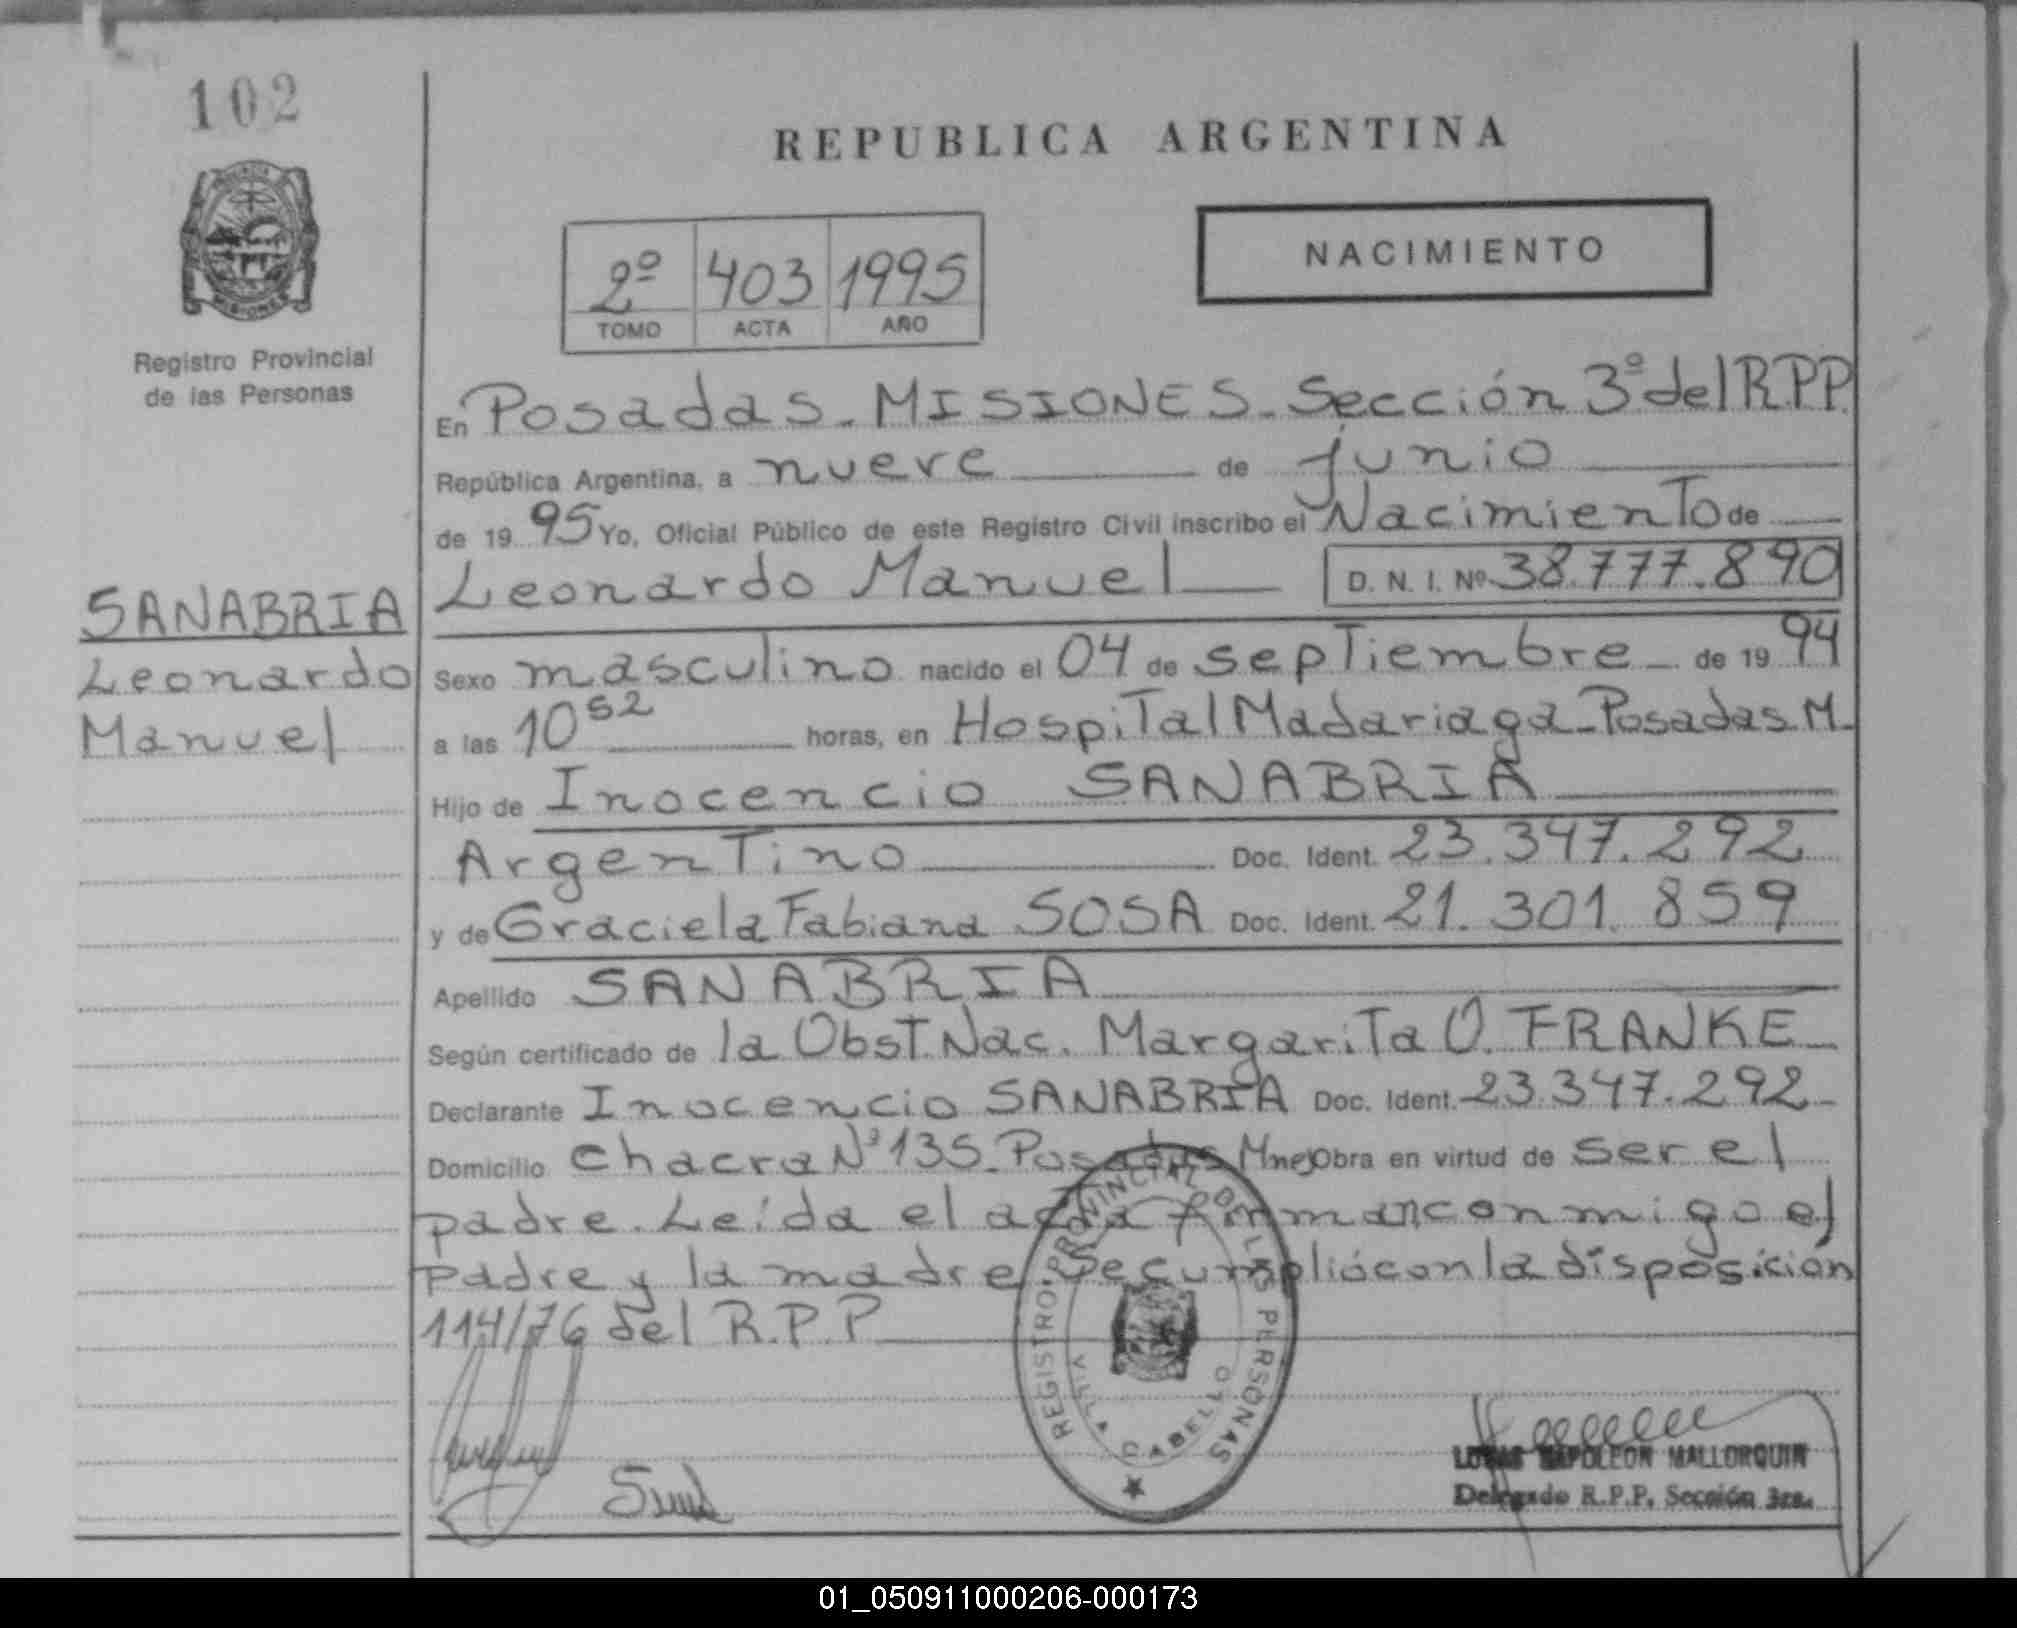 102
REPUBLICA ARGENTINA
MISIONES
Registro Provincial
de las Personas
2º 403 1995
TOMO ACTA AÑO
NACIMIENTO
En Posadas - MISIONES - Sección 3º del R.P.P.
República Argentina, a nueve de junio
de 19 95 Yo, Oficial Público de este Registro Civil inscribo el Nacimiento de
Leonardo Manuel D. N. I. Nº 38.777.890
SANABRIA
Leonardo
Manuel
Sexo masculino nacido el 04 de septiembre de 19 94
a las 10 52 horas, en Hospital Madariaga - Posadas M.
Hijo de Inocencio SANABRIA
Argentino Doc. Ident. 23.347.292
y de Graciela Fabiana SOSA Doc. Ident. 21.301.859
Apellido SANABRIA
Según certificado de la Obst. Nac. Margarita O. FRANKE
Declarante Inocencio SANABRIA Doc. Ident. 23.347.292
Domicilio Chacra Nº 135 - Posadas Mnes Obra en virtud de ser el
padre. Leída el acta firman conmigo el
padre y la madre. Se cumplió con la disposición
114/76 del R.P.P.
REGISTRO PROVINCIAL DE LAS PERSONAS
VILLA CABELLO
NAPOLEON MALLORQUIN
Delegado R.P.P. Sección 3ra.
01_050911000206-000173